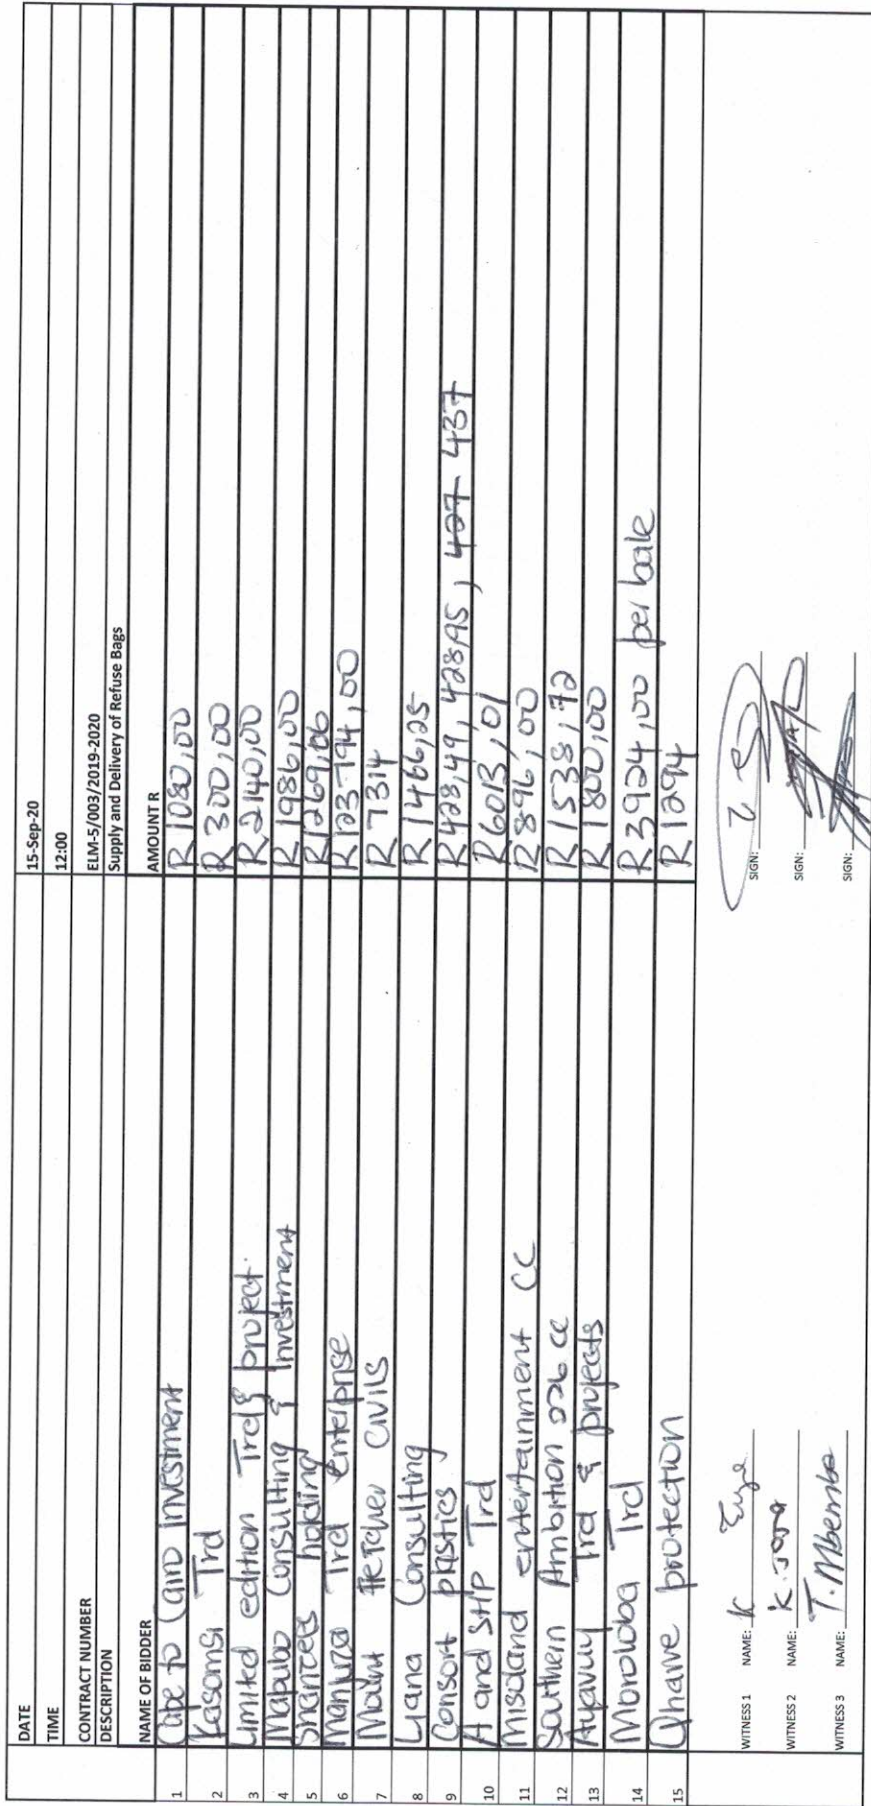 DATE 15-Sep-20
TIME 12:00
CONTRACT NUMBER ELM-5/003/2019-2020
DESCRIPTION Supply and Delivery of Refuse Bags
NAME OF BIDDER AMOUNT R
1 Cape to Cairo investment R1080,00
2 Kasomsi Trd R300,00
3 Limited edition Trd & project. R2140,00
4 Mapubo Consulting & Investment R1986,00
5 holding R1269,06
6 Trd enterprise R123794,00
7 Mount Fletcher civils R7314
8 Liana Consulting R1466,25
9 Consort plastics R428,49, 428,95, 427 437
10 A and SHP Trd R6013,01
11 Misoland entertainment CC R896,00
12 Southern Ambition 026 cc R1538,72
13 Ayavuy Trd & projects R1800,00
14 Moroloba Trd R3924,00 per bale
15 Qhawe protection R1294
WITNESS 1 NAME: K SIGN:
WITNESS 2 NAME: K. Jona SIGN:
WITNESS 3 NAME: T. Mbemba SIGN: